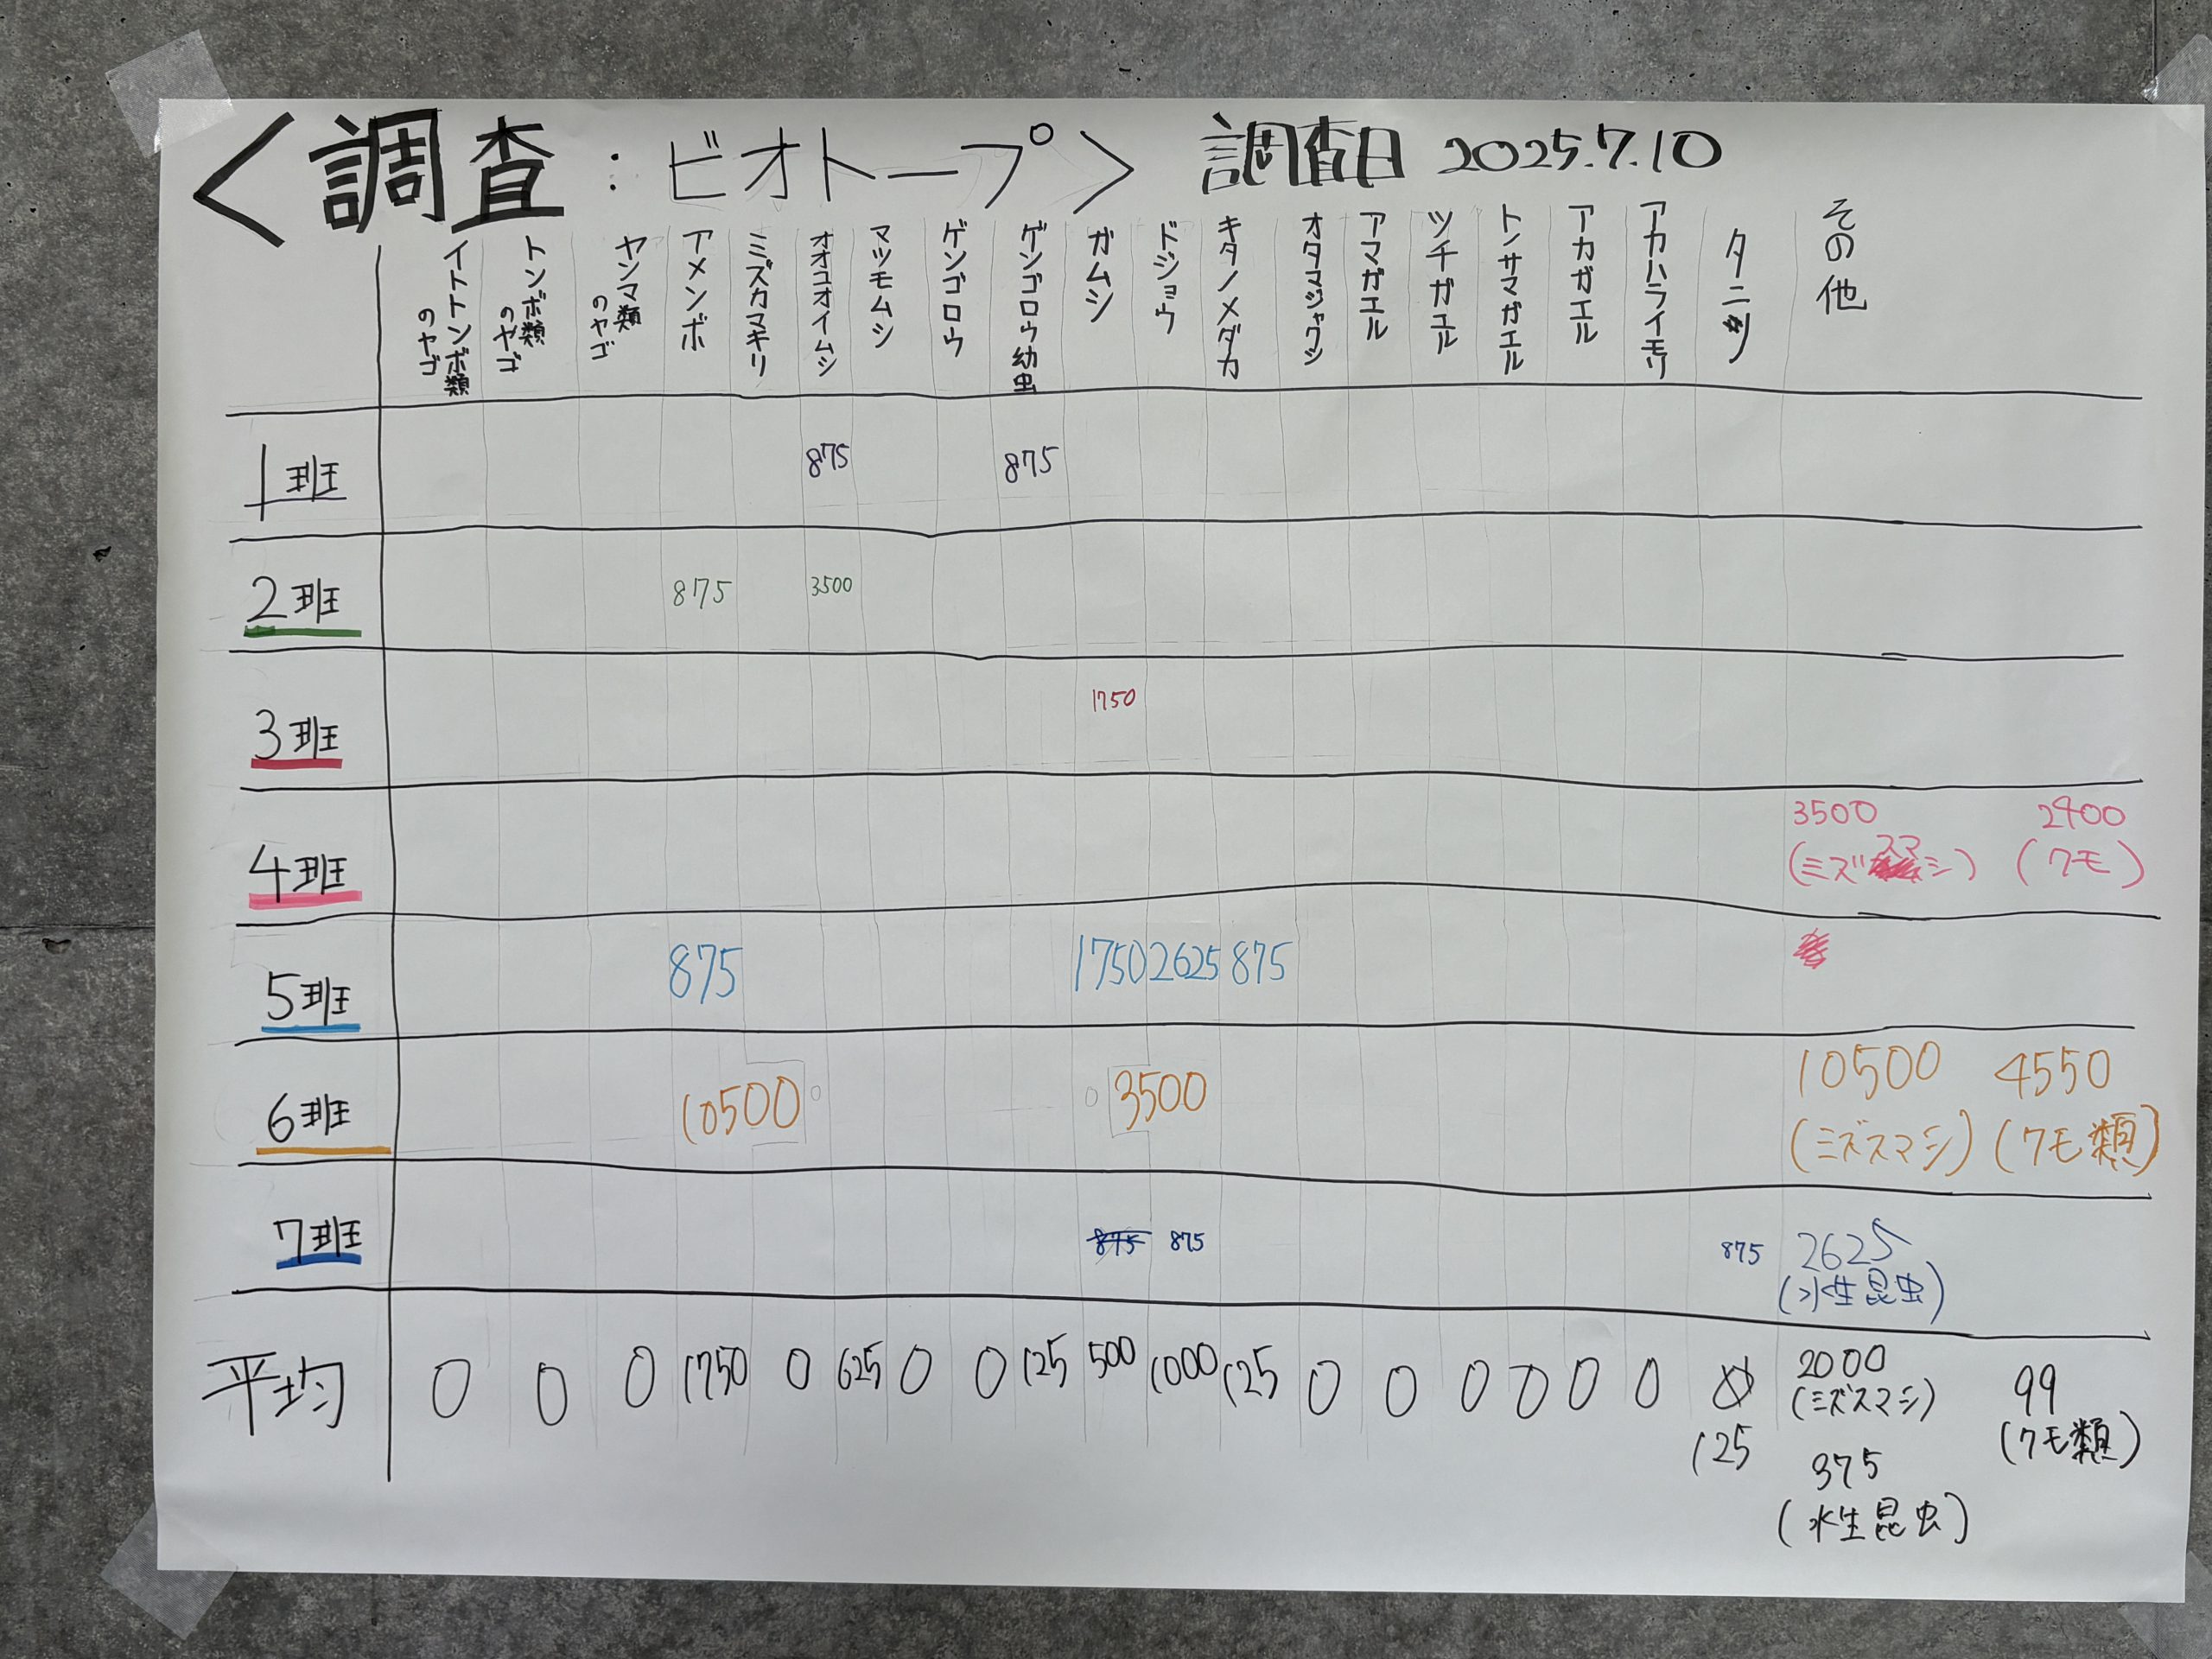 ＜調査：ビオトープ＞ 調査日 2025.7.10
イトトンボ類のヤゴ トンボ類のヤゴ ヤンマ類のヤゴ アメンボ ミズカマキリ オオコオイムシ マツモムシ ゲンゴロウ ゲンゴロウ幼虫 ガムシ ドジョウ キタノメダカ オタマジャクシ アマガエル ツチガエル トノサマガエル アカガエル アカハライモリ タニシ その他
1班 875 875
2班 875 3500
3班 1750
4班 3500 (ミズスマシ) 2400 (クモ)
5班 875 1750 2625 875
6班 10500 3500 10500 (ミズスマシ) 4550 (クモ類)
7班 875 875 875 2625 (水生昆虫)
平均 0 0 0 1750 0 625 0 0 125 500 1000 125 0 0 0 0 0 0 125 2000 (ミズスマシ) 99 (クモ類)
375 (水生昆虫)